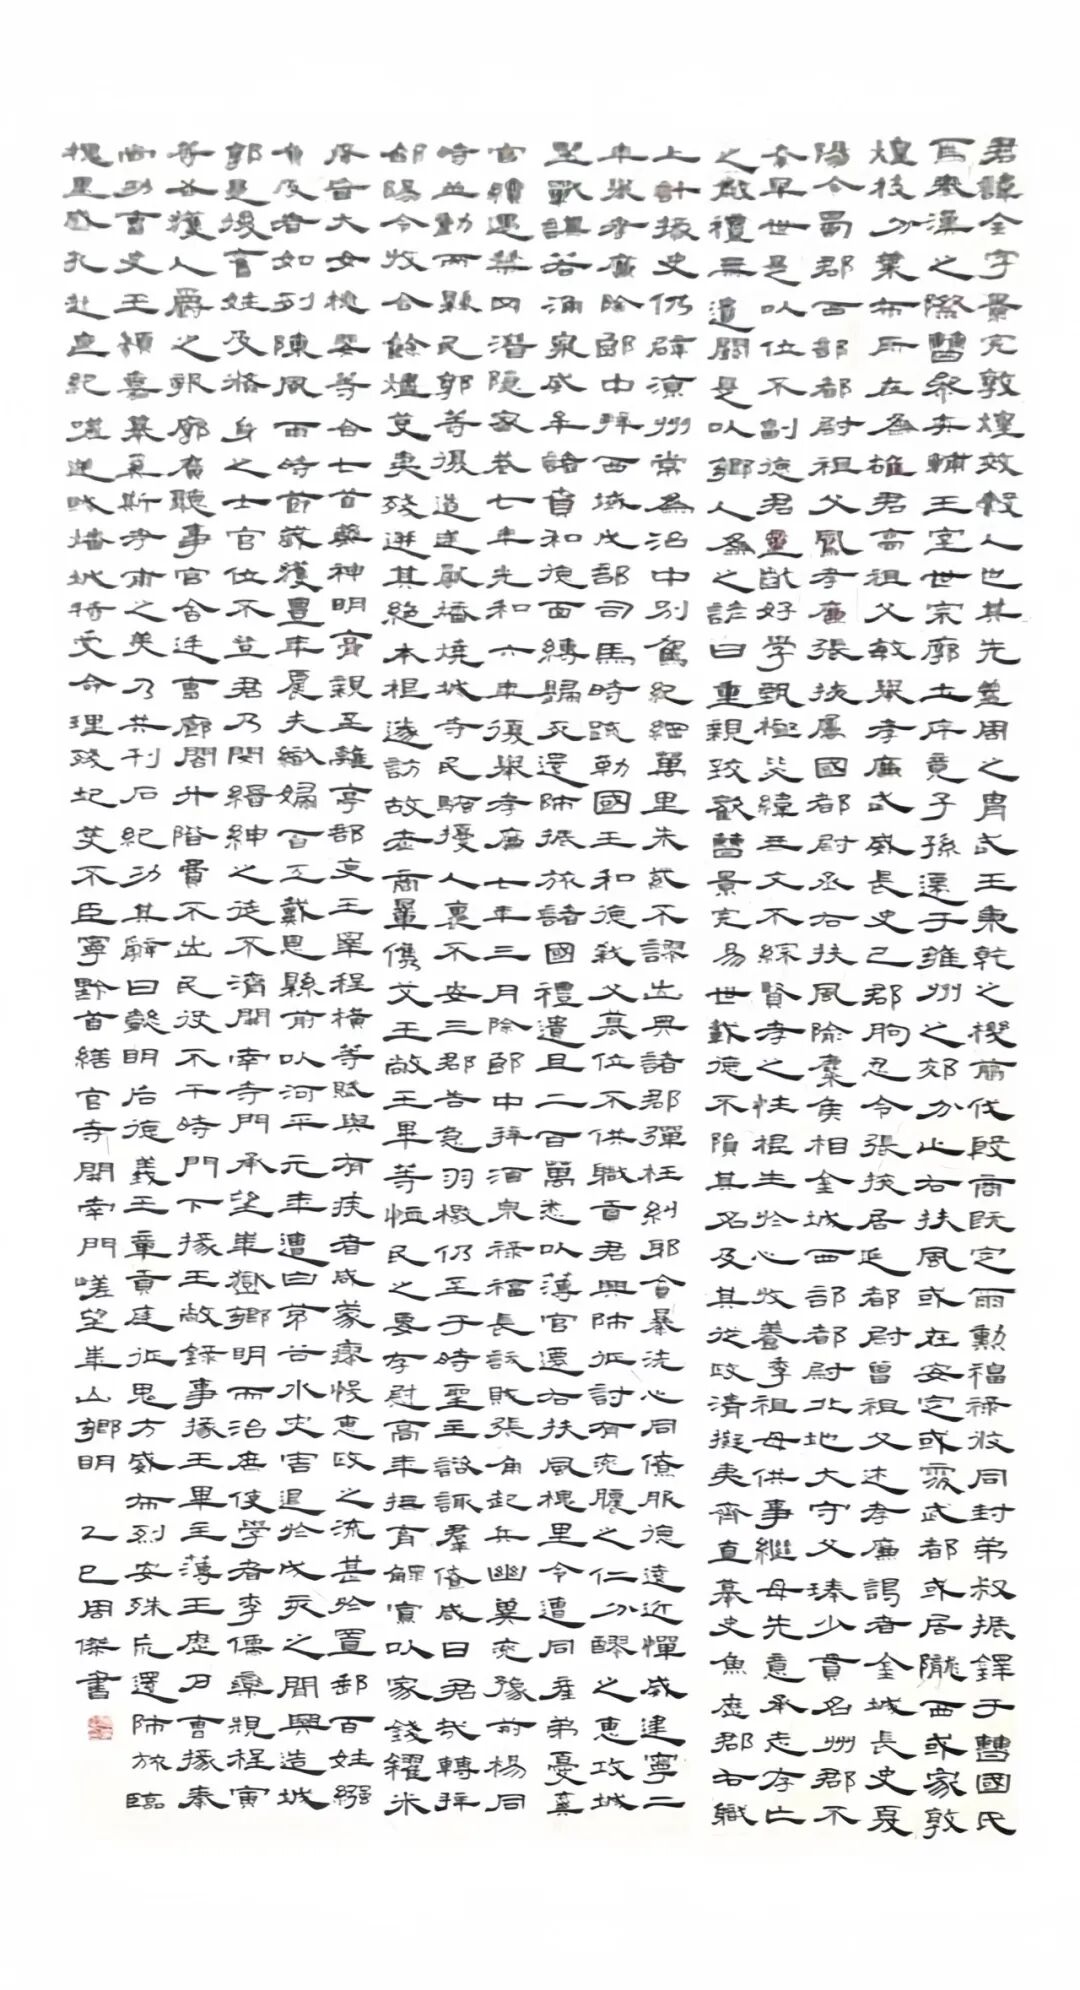 君諱全字景完敦煌效穀人也其先蓋周之冑武王秉乾之機翦伐殷商既定爾勳福祿攸同封弟叔振鐸于曹國氏
焉秦漢之際曹參夾輔王室世宗廓土斥竟子孫遷于雍州之郊分止右扶風或在安定或處武都或居隴西或家敦
煌枝分葉布所在為雄君高祖父敏舉孝廉武威長史巴郡朐忍令張掖居延都尉曾祖父述孝廉謁者金城長史夏
陽令蜀郡西部都尉祖父鳳孝廉張掖屬國都尉丞右扶風隃麋侯相金城西部都尉北地大守父琫少貫名州郡不
幸早世是以位不副德君童齔好學甄極毖緯無文不綜賢孝之性根生於心收養季祖母供事繼母先意承志存亡
之敬禮無遺闕是以鄉人為之諺曰重親致歡曹景完易世載德不隕其名及其從政清擬夷齊直慕史魚歷郡右職
上計掾史仍辟涼州常為治中別駕紀綱萬里朱紫不謬出典諸郡彈枉糾邪貪暴洗心同僚服德遠近憚威建寧二
年舉孝廉除郎中拜西域戊部司馬時疏勒國王和德弒父篡位不供職貢君興師征討有兗膿之仁分醪之惠攻城
野戰謀若涌泉威牟諸賁和德面縛歸死還師振旅諸國禮遺且二百萬悉以薄官遷右扶風槐里令遭同產弟憂棄
官續遇禁罔潛隱家巷七年光和六年復舉孝廉七年三月除郎中拜酒泉祿福長訞賊張角起兵幽冀兗豫荊楊同
時並動而縣民郭等復造逆亂燔燒城寺民騷擾人裏不安三郡告急羽檄仍至于時聖主諮諏群僚咸曰君哉轉拜
郃陽令收合餘燼芟夷殘迸其絕本根遂訪故老商量儁艾王敞王畢等恤民之要存慰高年撫育鰥寡以家錢糴米
癃盲大女桃婓等合七首藥神明膏親至離亭部吏王皋程橫等賦與有疾者咸蒙瘳悛惠政之流甚於置郵百姓繈
負反者如列陳風雨時節歲獲豐年農夫織婦百工戴恩縣前以河平元年遭白茅谷水災害退於戊亥之間興造城
郭是後舊姓及脩身之士官位不登君乃閔縉紳之徒不濟開南寺門承望華嶽鄉明而治庶使學者李儒欒規程寅
等各獲人爵之報廓廣聽事官舍廷曹廊閣升階費不出民役不干時門下掾王敞錄事掾王畢主薄王歷戶曹掾秦
尚功曹史王顓嘉慕奚斯考甫之美乃共刊石紀功其辭曰懿明后德義王章貢庭征鬼方威布烈安殊荒還師旅臨
槐里感孔赴喪紀嗟逆賊燔城特受命理殘圮芟不臣寧黔首繕官寺開南門嗟望華山鄉明
乙巳周傑書